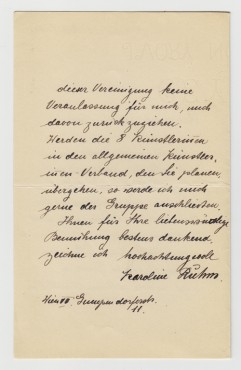 dieser Vereinigung keine
Veranlassung für mich, mich
davon zurückzuziehen.
Werden die 8 Künstlerinnen
in den allgemeinen Künstler,
innen Verband, den Sie planen,
übergehen, so werde ich mich
gerne der Gruppe anschließen.
Ihnen für Ihre liebenswürdige
Bemühung bestens dankend,
zeichne ich hochachtungsvoll
Karoline
Wien VI Gumpendorferstr.
11.